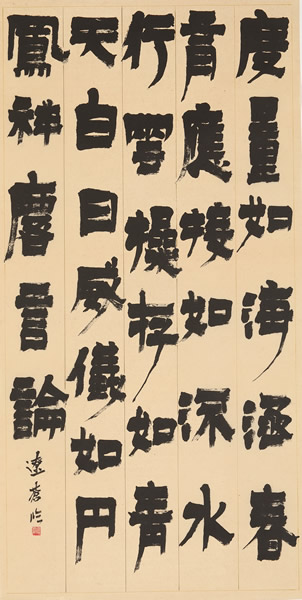 度量如海涵春
育應接如流水
行雲操存如青
天白日威儀如丹
鳳祥麐言論
臨